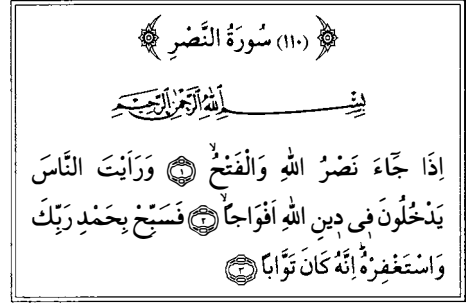 (١١٠) سُورَةُ النَّصْرِ
بِسْمِ اللّٰهِ الرَّحْمٰنِ الرَّحِيمِ
اِذَا جَٓاءَ نَصْرُ اللّٰهِ وَالْفَتْحُۙ ﴿١﴾ وَرَاَيْتَ النَّاسَ
يَدْخُلُونَ ف۪ي د۪ينِ اللّٰهِ اَفْوَاجاًۙ ﴿٢﴾ فَسَبِّحْ بِحَمْدِ رَبِّكَ
وَاسْتَغْفِرْهُۜ اِنَّهُ كَانَ تَوَّاباً ﴿٣﴾